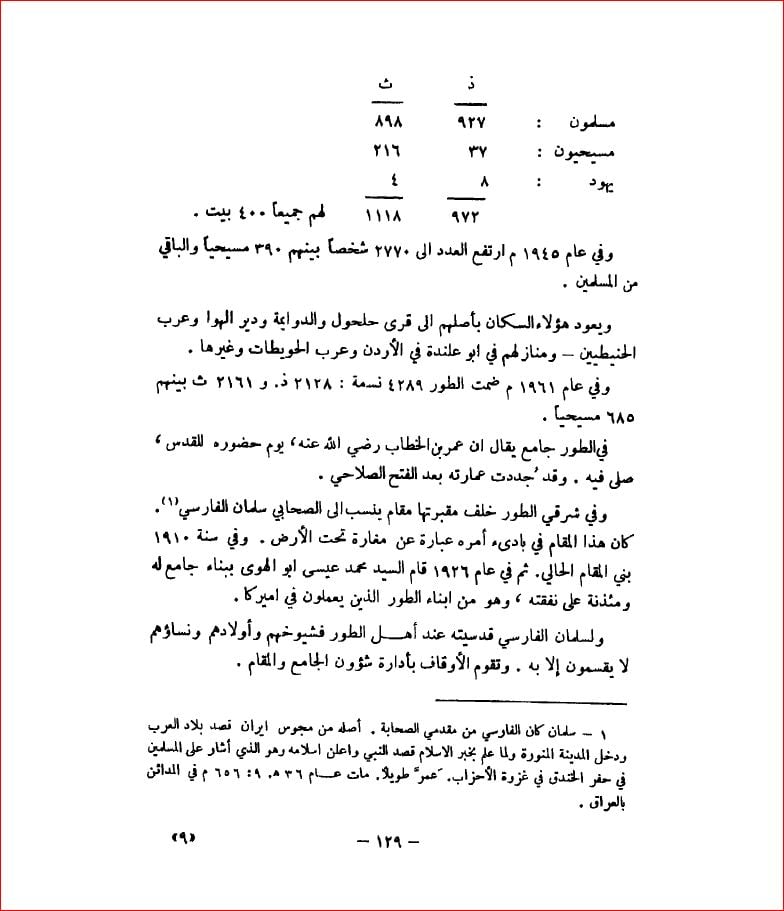 ذ ث
مسلمون : ٩٢٧ ٨٩٨
مسيحيون : ٣٧ ٢١٦
يهود : ٨ ٤
٩٧٢ ١١١٨ لهم جميعاً ٤٠٠ بيت .
وفي عام ١٩٤٥ م ارتفع العدد الى ٢٧٧٠ شخصاً بينهم ٣٩٠ مسيحياً والباقي
من المسلمين .
ويعود هؤلاء السكان بأصلهم الى قرى حلحول والدوايمة ودير الهوا وعرب
الحنيطيين – ومنازلهم في ابو علندة في الأردن وعرب الحويطات وغيرها .
وفي عام ١٩٦١ م ضمت الطور ٤٢٨٩ نسمة : ٢١٢٨ ذ. و ٢١٦١ ث بينهم
٦٨٥ مسيحياً .
في الطور جامع يقال ان عمر بن الخطاب رضي الله عنه، يوم حضوره للقدس ،
صلى فيه . وقد جُددت عمارته بعد الفتح الصلاحي .
وفي شرقي الطور خلف مقبرتها مقام ينسب الى الصحابي سلمان الفارسي(١).
كان هذا المقام في بادىء أمره عبارة عن مغارة تحت الأرض . وفي سنة ١٩١٠
بني المقام الحالي. ثم في عام ١٩٢٦ قام السيد محمد عيسى ابو الهوى ببناء جامع له
ومئذنة على نفقته ، وهو من ابناء الطور الذين يعملون في اميركا .
ولسلمان الفارسي قدسيته عند أهـــل الطور فشيوخهم وأولادهم ونساؤهم
لا يقسمون إلا به . وتقوم الأوقاف بأدارة شؤون الجامع والمقام .
١ – سلمان كان الفارسي من مقدمي الصحابة . أصله من مجوس ايران قصد بلاد العرب
ودخل المدينة المنورة ولما علم بخبر الاسلام قصد النبي واعلن اسلامه وهو الذي أشار على المسلمين
في حفر الخندق في غزوة الأحزاب. عمرَّ طويلاً. مات عـــام ٣٦ هـ. ٩: ٦٥٦ م في المدائن
بالعراق .
– ١٢٩ – «٩»